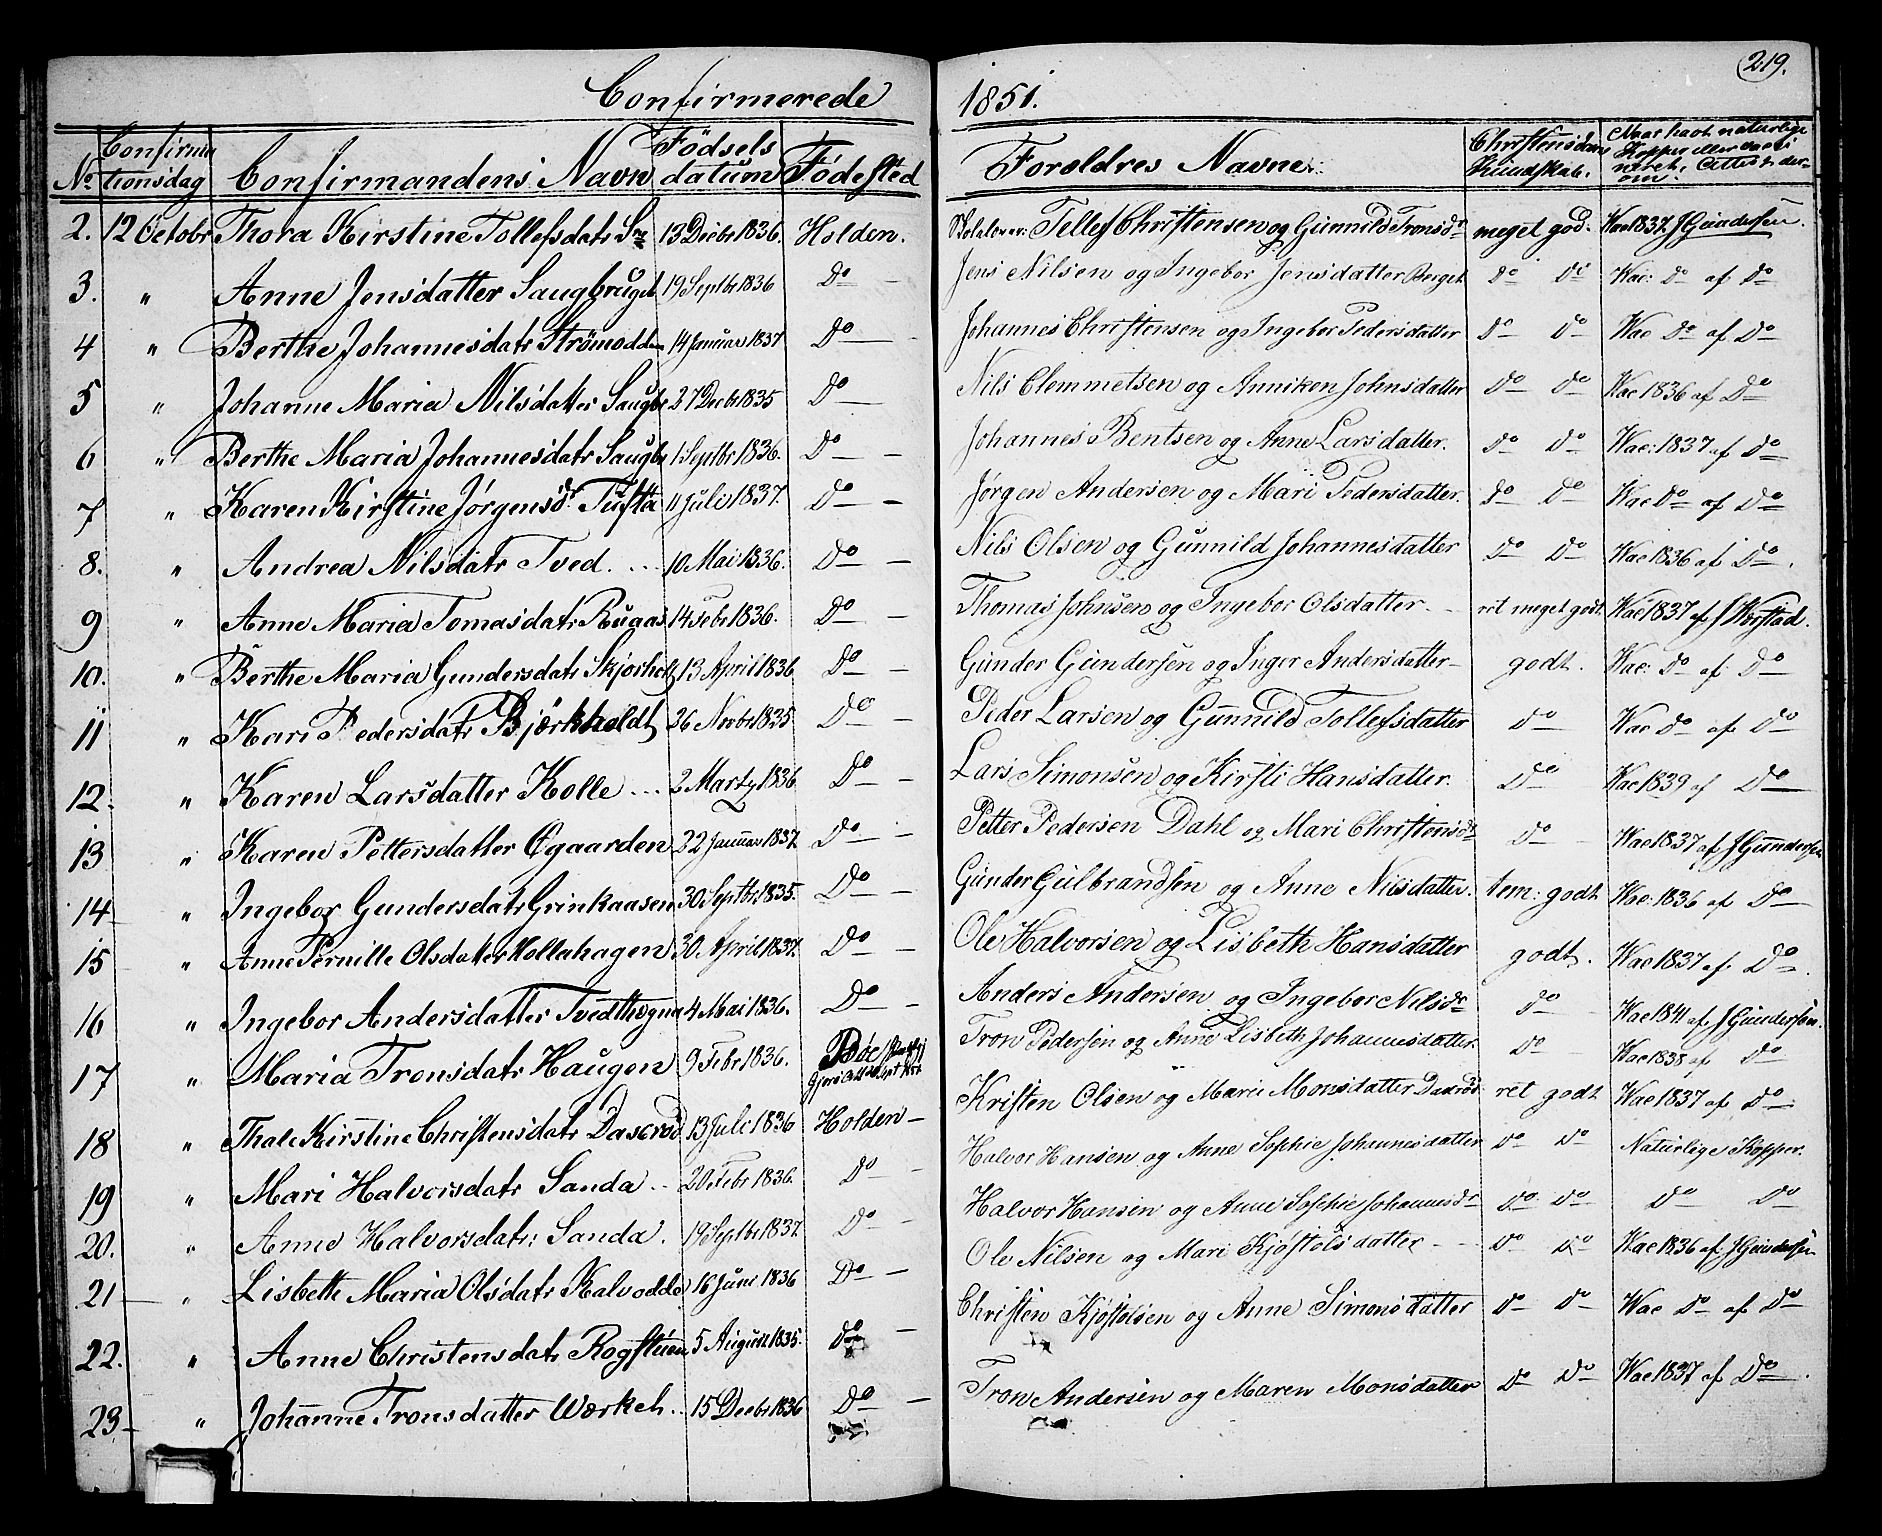 Confirmerede 1851.
219.
No. Confirmationsdag Confirmandens Navn Födsels datum Födested Foroldres Navne. Christendoms Kundskab. Naar havt naturlige Kopper eller vacineret. Attest derom.
2. 12 Octobr Thora Kirstine Tollefsdatr Sne 13 Decbr 1836. Holden. Skolelærer Tellef Christensen og Gunnild Tronsdr meget god. Vac 1837 J Gundersen.
3. " Anne Jensdatter Saugbruget 19 Septbr 1836 Do — Jens Nilsen og Ingebor Jensdatter Berget Do Do Vac: Do af Do
4 " Berthe Johannesdatr Strömodden 14 Januar 1837 Do — Johannes Christensen og Ingebor Pedersdatter Do Do Vac Do af Do
5 " Johanne Maria Nilsdatter Saugbr 27 Decbr 1835 Do — Nils Clemmetsen og Anniken Johnsdatter Do Do Vac 1836 af Do
6 " Berthe Maria Johannesdatr Saugbr 1 Septbr 1836. Do — Johannes Bentsen og Anne Larsdatter. Do Do Vac: 1837 af Do
7 " Karen Kirstine Jørgensdr Tufta 11 Juli 1837. Do — Jørgen Andersen og Mari Pedersdatter. Do Do Vac Do af Do
8. " Andrea Nilsdatr Tved. 10 Mai 1836. Do — Nils Olsen og Gunnild Johannesdatter Do Do Vac 1836 af Do.
9 " Anne Maria Tomasdatr Rugaas 14 Febr 1836. Do — Thomas Johnsen og Ingebor Olsdatter ret meget godt. Vac 1837 af J Kystad.
10. " Berthe Maria Gundersdatr Skjorholt 13 April 1836 Do — Gunder Gundersen og Inger Andersdatter godt. Vac: Do af Do
11 " Kari Pedersdatr Bjørkholdt 26 Novbr 1835 Do — Peder Larsen og Gunnild Tollefsdatter Do Vac Do af Do
12 " Karen Larsdatter Kolle 2 Marty 1836 Do — Lars Simonsen og Kirsti Hansdatter. Do Vac 1839 af Do
13 " Karen Pettersdatter Øgaarden 22 Januar 1837. Do — Petter Pedersen Dahl og Mari Christensdr Do Vac 1837 af J Gundersen
14 " Ingebor Gundersdatr Grinkaasen 30 Septbr 1835. Do — Gunder Gulbrandsen og Anne Nilsdatter. tem: godt Vac: 1836 af Do
15 " Anne Pernille Olsdatter Hollahagen 30 April 1837. Do — Ole Halvorsen og Lisbeth Hansdatter godt. Vac 1837 af Do.
16 " Ingebor Andersdatter Tvedthøgna 4 Mai 1836. Do — Anders Andersen og Ingebor Nilsdr Do Vac 1841 af J Gundersen.
17 " Maria Tronsdatr Haugen 9 Febr 1836. Bøe Tron Pedersen og Anne Lisbeth Johannesdatter. Do Vac 1838 af Do
18 " Thale Kirstine Christensdatr Dascrød 13 Juli 1836 Holden — Kristen Olsen og Marie Monsdatter Dascrød ret godt Vac 1837 af Do
19 " Mari Halvorsdatr Sanda 20 Febr 1836. Do — Halvor Hansen og Anne Sophie Johannesdatter Do Do Naturlige Kopper.
20. " Anne Halvorsdatr: Sanda. 19 Septbr 1837. Do — Halvor Hansen og Anne Sophie Johannesdr Do Do Do Do
21 " Lisbeth Maria Olsdatr Kalvodde 16 Juni 1836 Do — Ole Nilsen og Mari Kjøstolsdatter Do Do Vac 1836 af J Gundersen
22. " Anne Christensdatr Rogstuen 5 August 1835. Do — Christen Kjøstolsen og Anne Simonsdatter Do Do Vac Do af Do
23. " Johanne Tronsdatter Værket 15 Decbr 1836 Do — Tron Andersen og Maren Monsdatter Do Do Vac 1837 af Do.